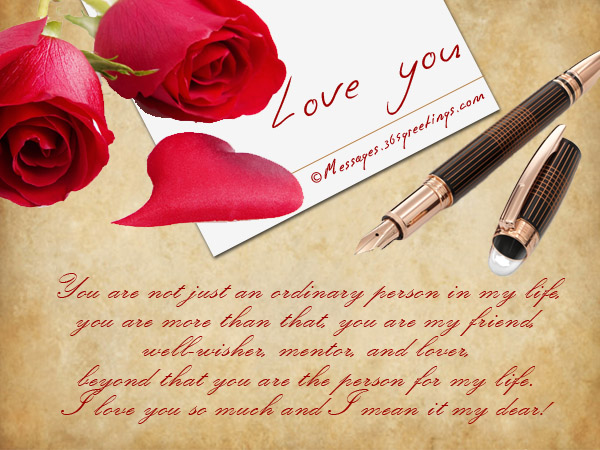 Love you
©Messages.365greetings.com
You are not just an ordinary person in my life,
you are more than that, you are my friend,
well-wisher, mentor, and lover,
beyond that you are the person for my life.
I love you so much and I mean it my dear!